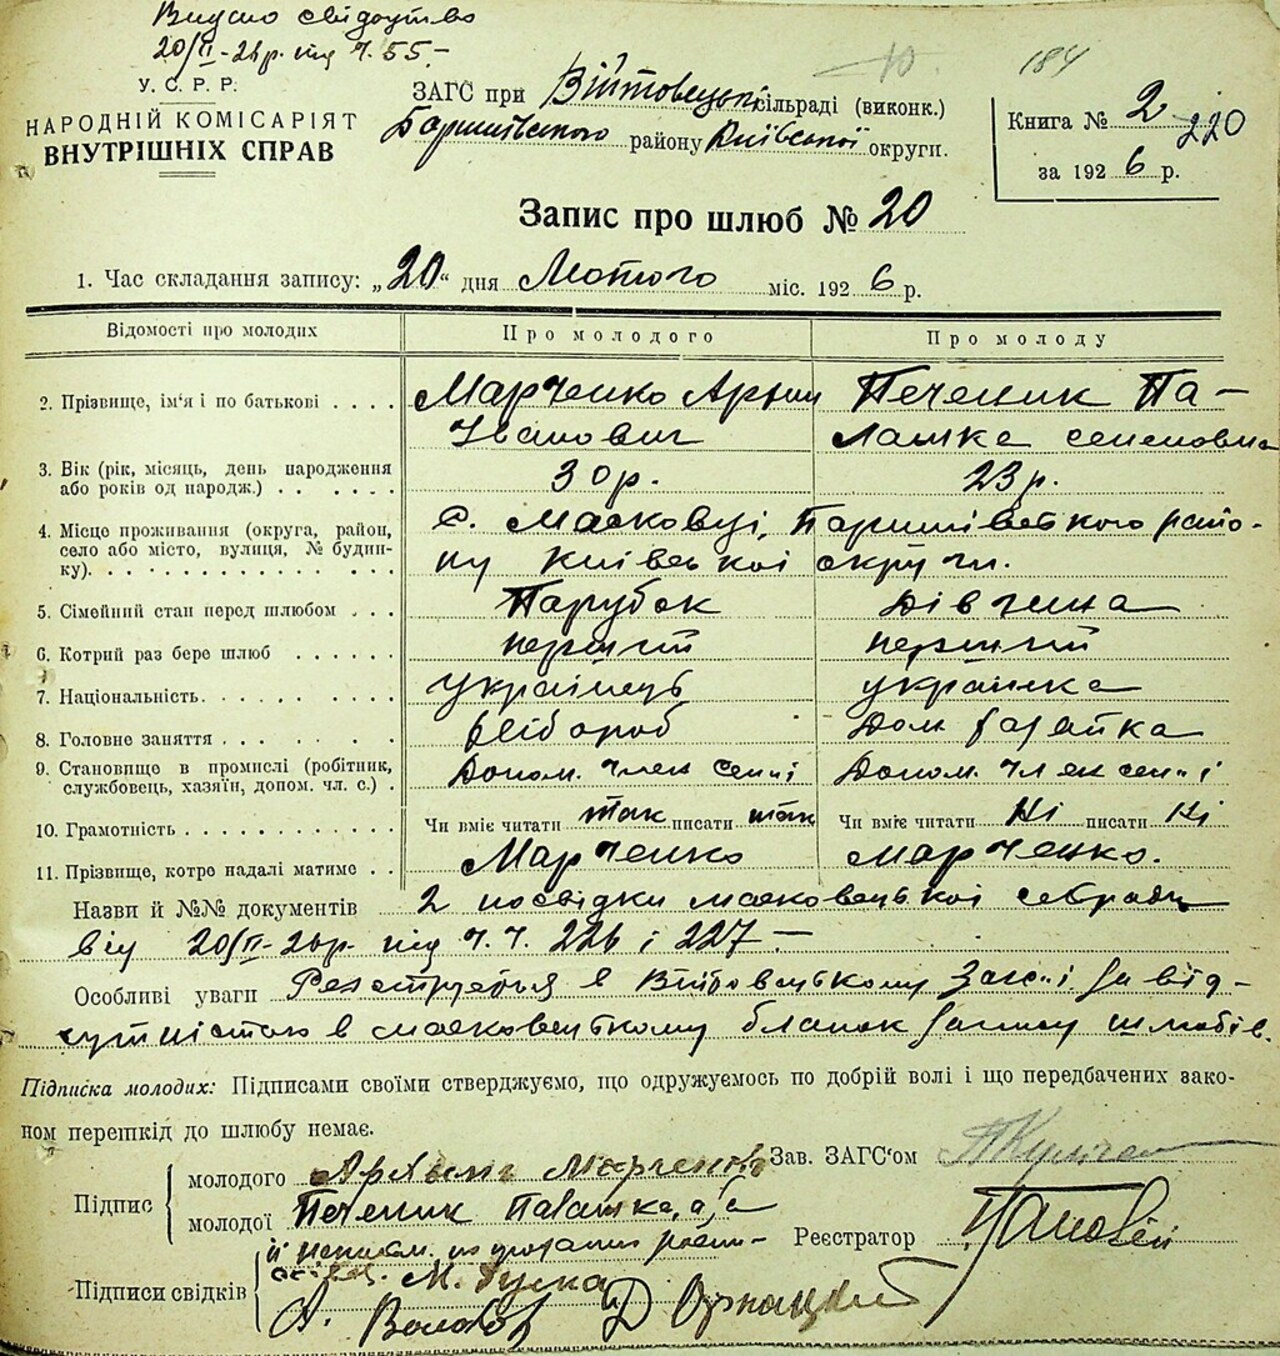 Видано свідоцтво
20/II-26р. під ч. 55.-
У. С. Р. Р.
НАРОДНІЙ КОМІСАРІЯТ
ВНУТРІШНІХ СПРАВ
184
ЗАГС при Війтовецькі сільраді (виконк.)
Баришівського району Київської округи.
Книга № 2
220
за 1926 р.
Запис про шлюб № 20
1. Час складання запису: „20“ дня Лютого міс. 1926 р.
Відомості про молодих Про молодого Про молоду
2. Прізвище, ім'я і по батькові . . . . Марченко Архип Печеник Па-
Іванович лашка семеновна
3. Вік (рік, місяць, день народження 30р. 23р.
або років од народж.) . . . . . .
4. Місце проживання (округа, район, с. Масковці, Баришівського райо-
село або місто, вулиця, № будин- ну Київської округи.
ку). . . . . . . . . . . . . . .
5. Сімейний стан перед шлюбом . . . Парубок Дівчина
6. Котрий раз бере шлюб . . . . . . перший перший
7. Національність. . . . . . . . . українець українка
8. Головне заняття . . . . . . . хлібороб Дом хазяйка
9. Становище в промислі (робітник, Допом. член семьі Допом. член семьі
службовець, хазяїн, допом. чл. с.) .
10. Грамотність . . . . . . . . . . . . Чи вміє читати так писати так Чи вміє читати Ні писати Ні
11. Прізвище, котре надалі матиме . . Марченко Марченко.
Назви й №№ документів 2 посвідки масковецької с\ради
від 20/II-26р. під ч.ч. 226 і 227-
Особливі уваги Реєструється в Війтовецькому Загсі за від-
сутністю в масковецькому бланок запису шлюбів.
Підписка молодих: Підписами своїми стверджуємо, що одружуємось по добрій волі і що передбачених зако-
ном перешкід до шлюбу немає.
Підпис
молодого Архып Марченко
Зав. ЗАГС'ом
молодої Печеник Палашка, а за
її неписьм. по проханню
Реєстратор
Підписи свідків
М.
А. Д